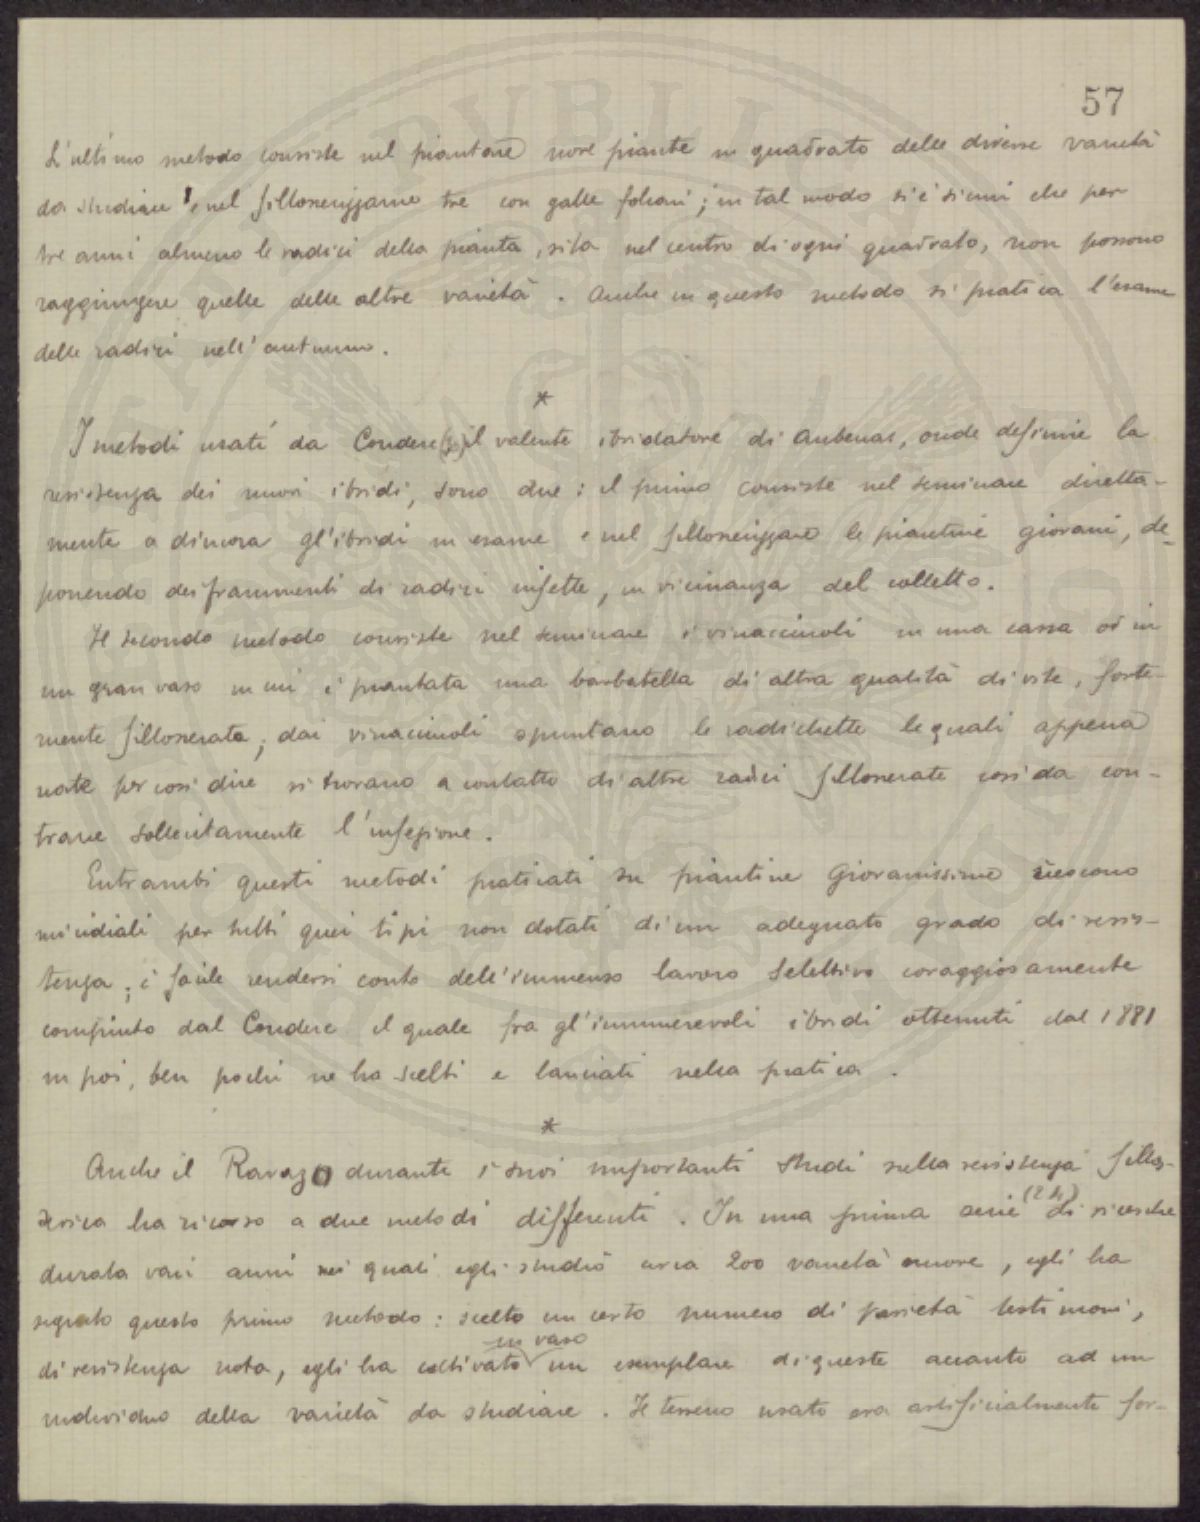 57
L'ultimo metodo consiste nel piantare nove piante in quadrato delle diverse varietà
da studiare e nel fillosserizzarne tre con galle foliari; in tal modo si è sicuri che per
tre anni almeno le radici della pianta, sita nel centro di ogni quadrato, non possono
raggiungere quelle delle altre varietà. Anche in questo metodo si pratica l'esame
delle radici nell'autunno.
*
I metodi usati da Couderc il valente ibridatore di Aubenas, onde definire la
resistenza dei nuovi ibridi, sono due: il primo consiste nel seminare diretta-
mente a dimora gl'ibridi in esame e nel fillosserizzare le piantine giovani, de-
ponendo dei frammenti di radici infette, in vicinanza del colletto.
Il secondo metodo consiste nel seminare i vinacciuoli in una cassa od in
un gran vaso in cui è piantata una barbatella di altra qualità di vite, forte-
mente fillosserata; dai vinacciuoli spuntano le radichette le quali appena
nate per così dire si trovano a contatto di altre radici fillosserate così da con-
trarre sollecitamente l'infezione.
Entrambi questi metodi praticati su piantine giovanissime riescono
micidiali per tutti quei tipi non dotati di un adeguato grado di resis-
tenza; è facile rendersi conto dell'immenso lavoro selettivo coraggiosamente
compiuto dal Couderc il quale fra gl'innumerevoli ibridi ottenuti dal 1881
in poi, ben pochi ne ha scelti e lanciati nella pratica.
*
Anche il Ravaz durante i suoi importanti studi sulla resistenza fillos-
serica ha ricorso a due metodi differenti. In una prima serie di ricerche
durata vari anni nei quali egli studiò circa 200 varietà nuove, egli ha
seguito questo primo metodo: scelto un certo numero di varietà testimoni,
in vaso
di resistenza nota, egli ha coltivato un esemplare di queste accanto ad un
individuo della varietà da studiare. Il terreno usato era artificialmente for-